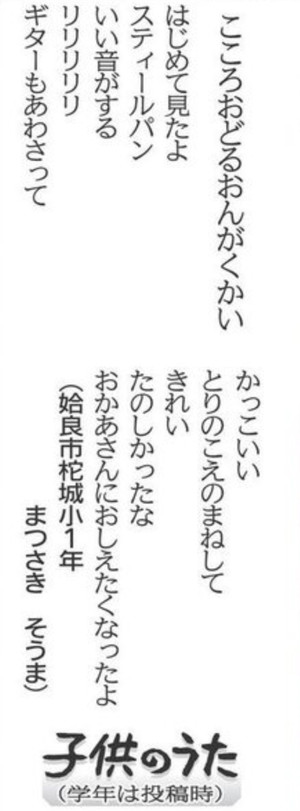 こころおどるおんがくかい
はじめて見たよ
スティールパン
いい音がする
リリリリリ
ギターもあわさって
かっこいい
とりのこえのまねして
きれい
たのしかったな
おかあさんにおしえたくなったよ
(姶良市柁城小1年
まつさき　そうま)
子供のうた
(学年は投稿時)